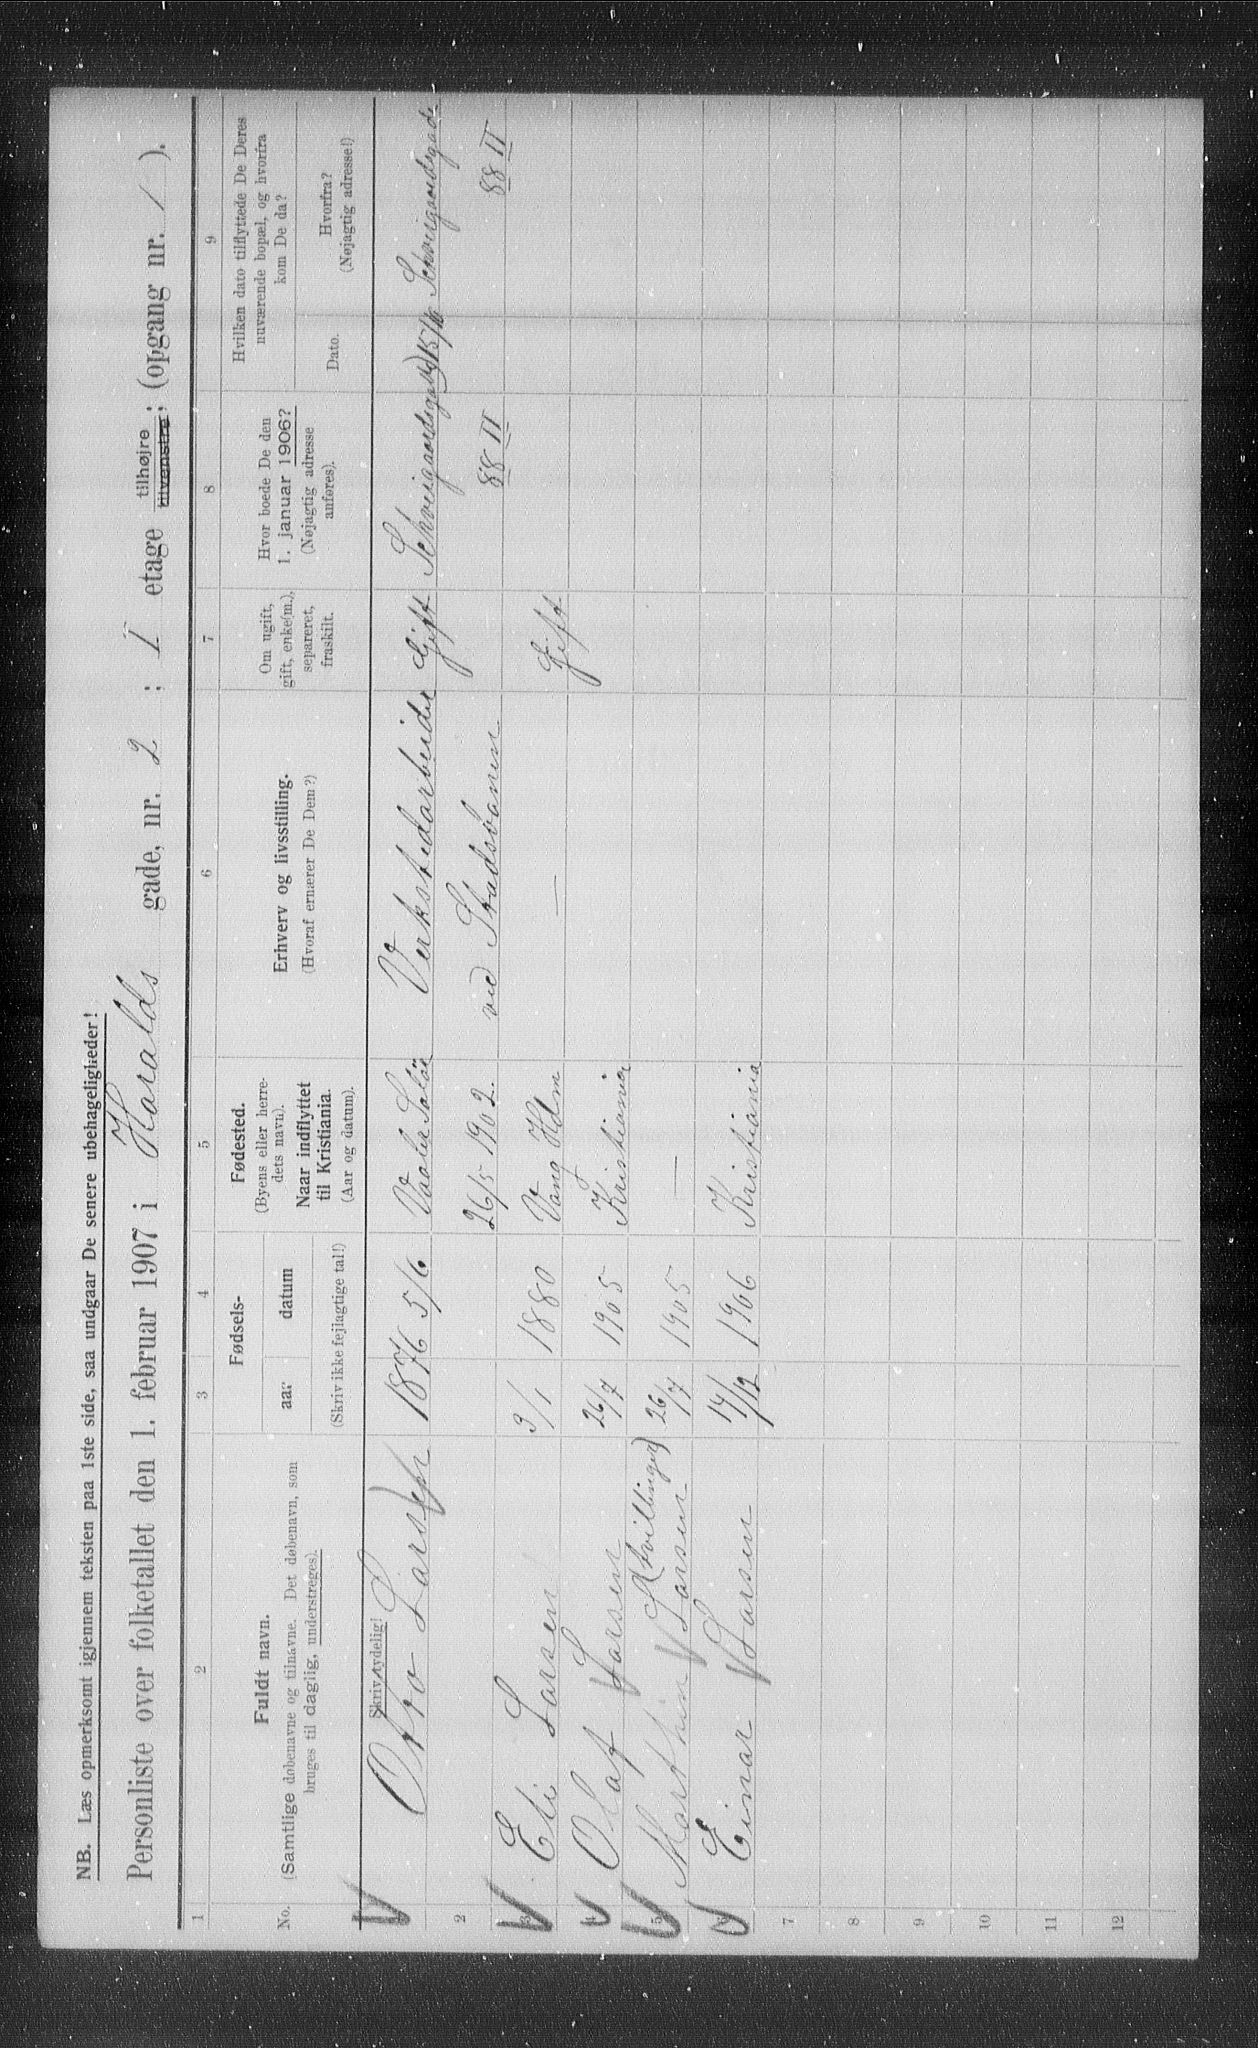 NB. Læs opmerksomt igjennem teksten paa 1ste side, saa undgaar De senere ubehageligheder!
Personliste over folketallet den 1. februar 1907 i Haralds gade, nr. 2 ; I etage tilhøjre tilvenstre; (opgang nr. / ).
1 2 3 4 5 6 7 8 9
No.
Fuldt navn.
(Samtlige døbenavne og tilnavne. Det døbenavn, som
bruges til daglig, understreges).
Skriv tydelig!
Fødsels-
aar datum
(Skriv ikke fejlagtige tal!)
Fødested.
(Byens eller herre-
dets navn).
Naar indflyttet
til Kristiania.
(Aar og datum).
Erhverv og livsstilling.
(Hvoraf ernærer De Dem?)
Om ugift,
gift, enke(m.),
separeret,
fraskilt.
Hvor boede De den
1. januar 1906?
(Nøjagtig adresse
anføres).
Hvilken dato tilflyttede De Deres
nuværende bopæl, og hvorfra
kom De da?
Dato.
Hvorfra?
(Nøjagtig adresse!)
Otto Larsen 1876 5/6 Vaaler Solør Verkstedarbeider Gift Schweigaardsgade 15/10 Schweigaardsgade
2 26/5 1902. ved Stadsbanen 88 II 88 II
3 Larsen 3/1 1880 Vang Hdm — Gift
4 Olaf Larsen 26/7 1905 Kristiania
5 Marthin Larsen (tvillinger) 26/7 1905 —
6 Einar Larsen 14/12 1906 Kristiania
7
8
9
10
11
12